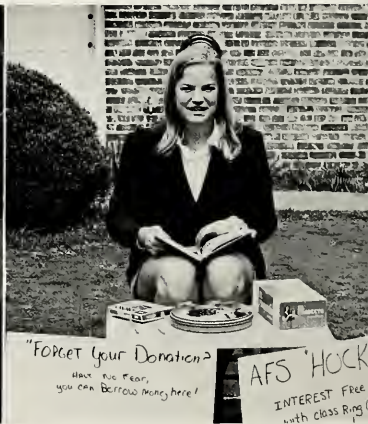 "FORGET your Donation?
Have no fear,
you can Borrow money here!
AFS 'HOCK
INTEREST FREE
with class Ring